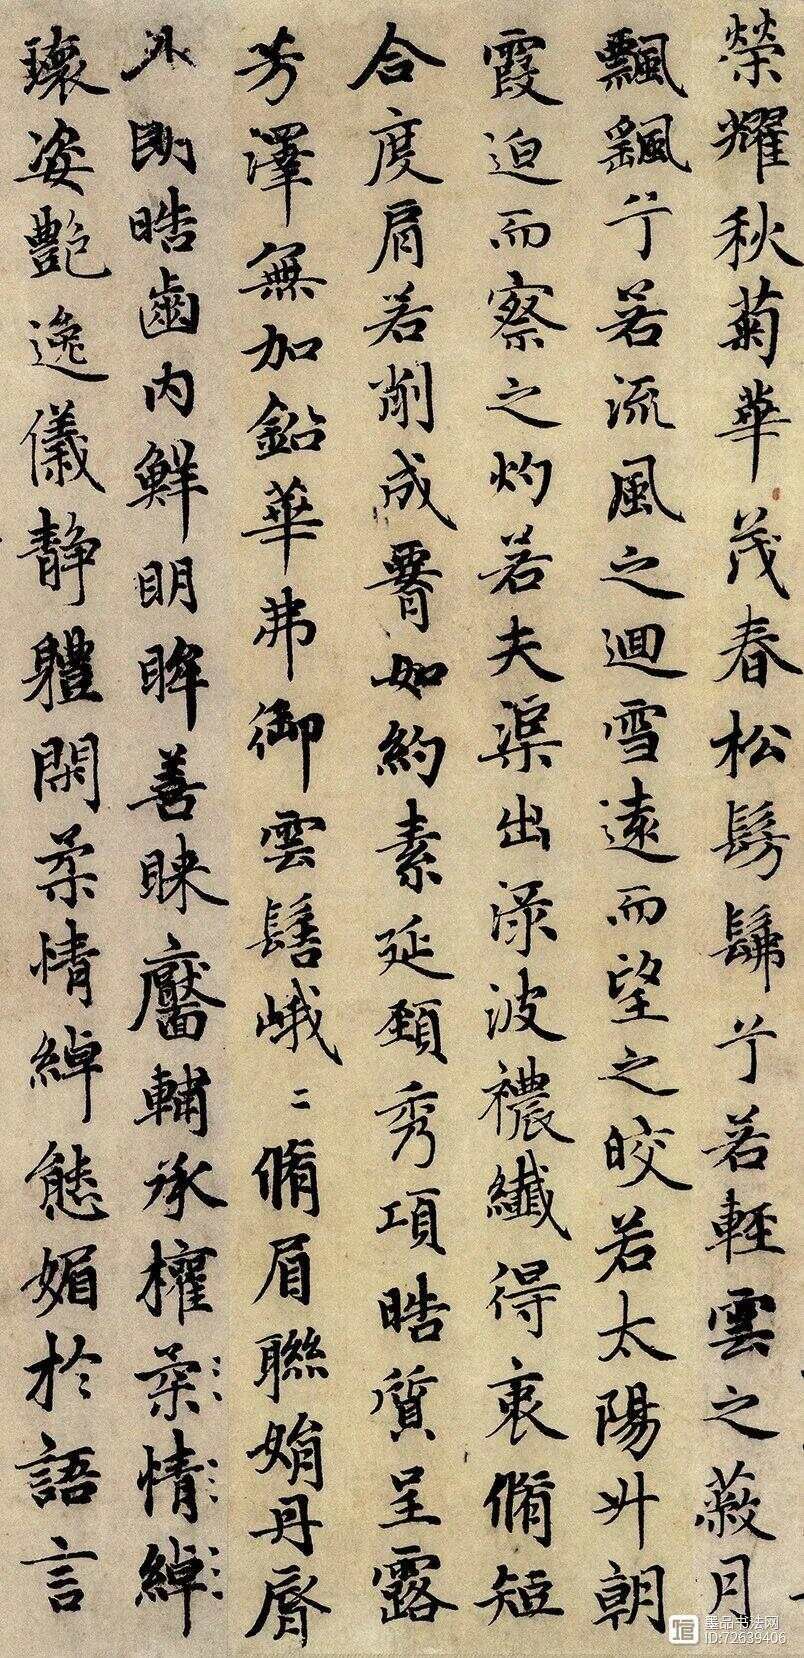 榮耀秋菊華茂春松髣髴兮若輕雲之蔽月
飄颻兮若流風之迴雪遠而望之皎若太陽升朝
霞迫而察之灼若夫渠出淥波襛纖得衷脩短
合度肩若削成𦝫如約素延頸秀項晧質呈露
芳澤無加鈆華弗御雲髻峨〻脩眉聯娟丹脣
外朗晧齒內鮮明眸善睞靨輔承權柔情綽
瓌姿艷逸儀靜軆閑柔情綽態媚於語言
墨品书法网
ID:72639406